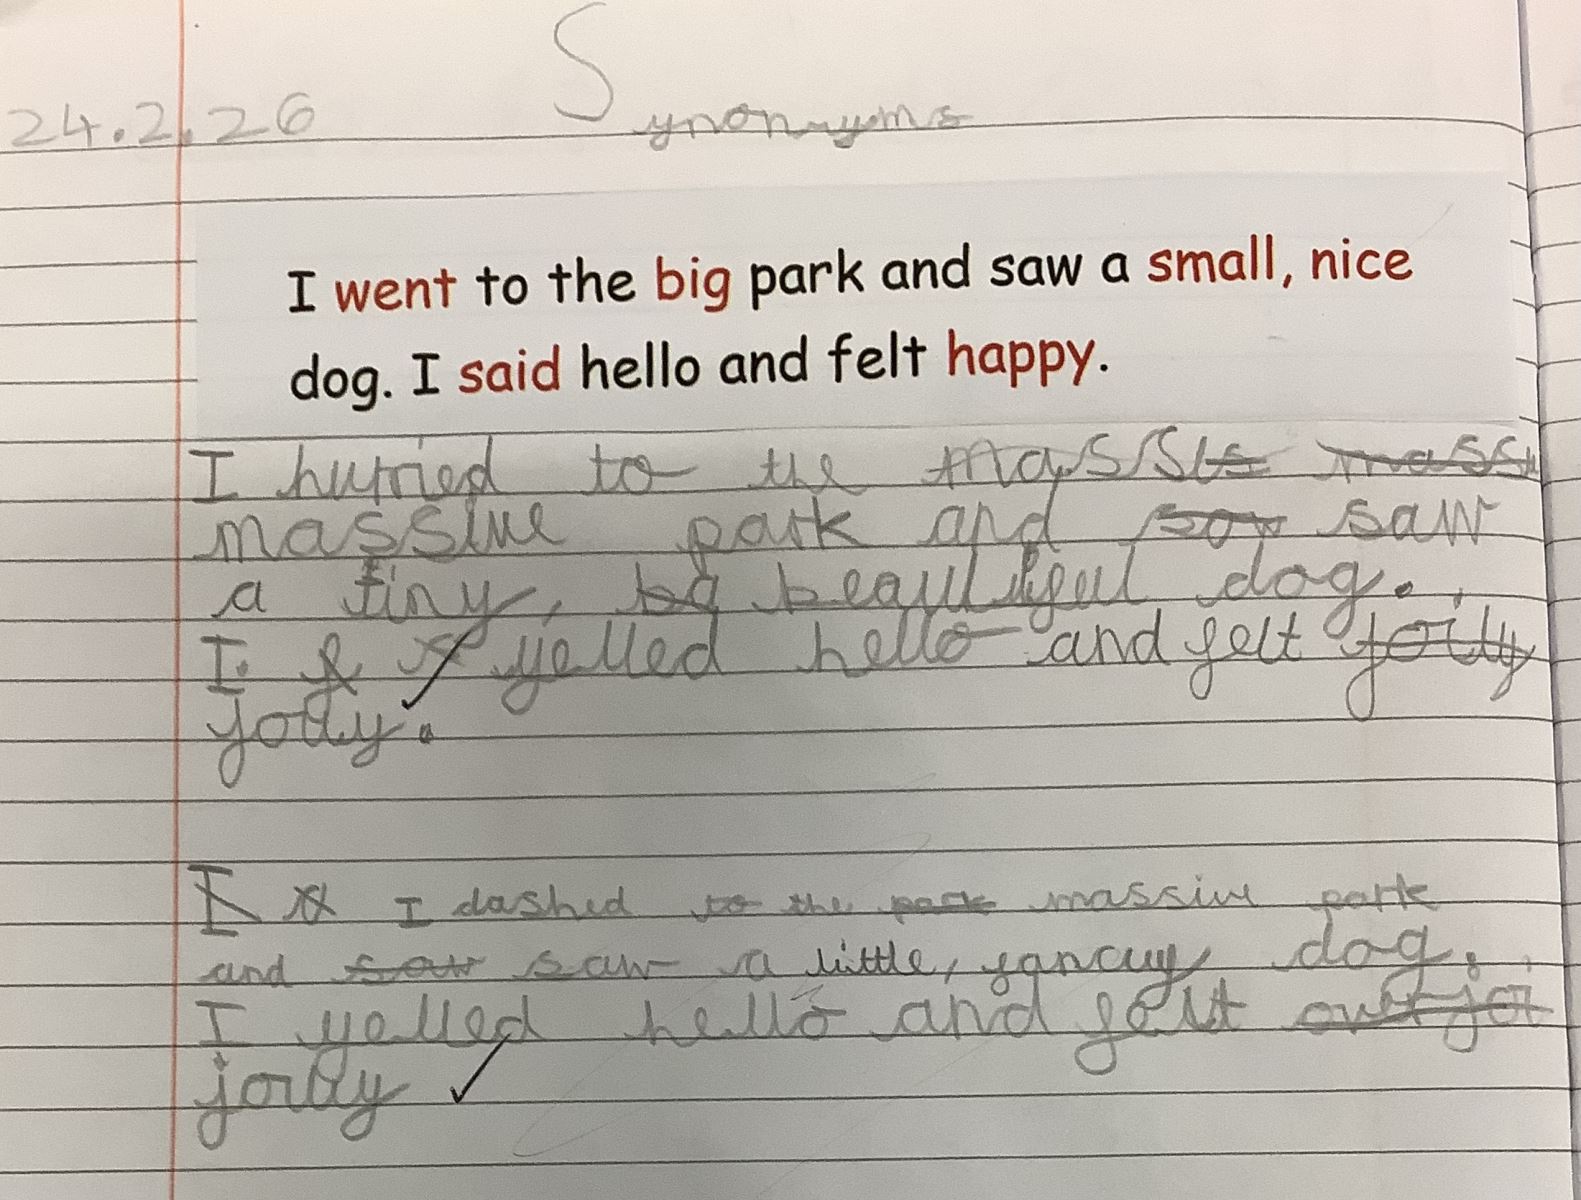 24.2.26 Synonyms
I went to the big park and saw a small, nice
dog. I said hello and felt happy.
I hurried to the massie massi
massive park and sow saw
a tiny, bq beautiful dog.
I yelled hello and felt joily
jolly.
I I dashed to the park massive park
and sow saw a little, fancuy dog.
I yelled hello and felt overjoi
jolly